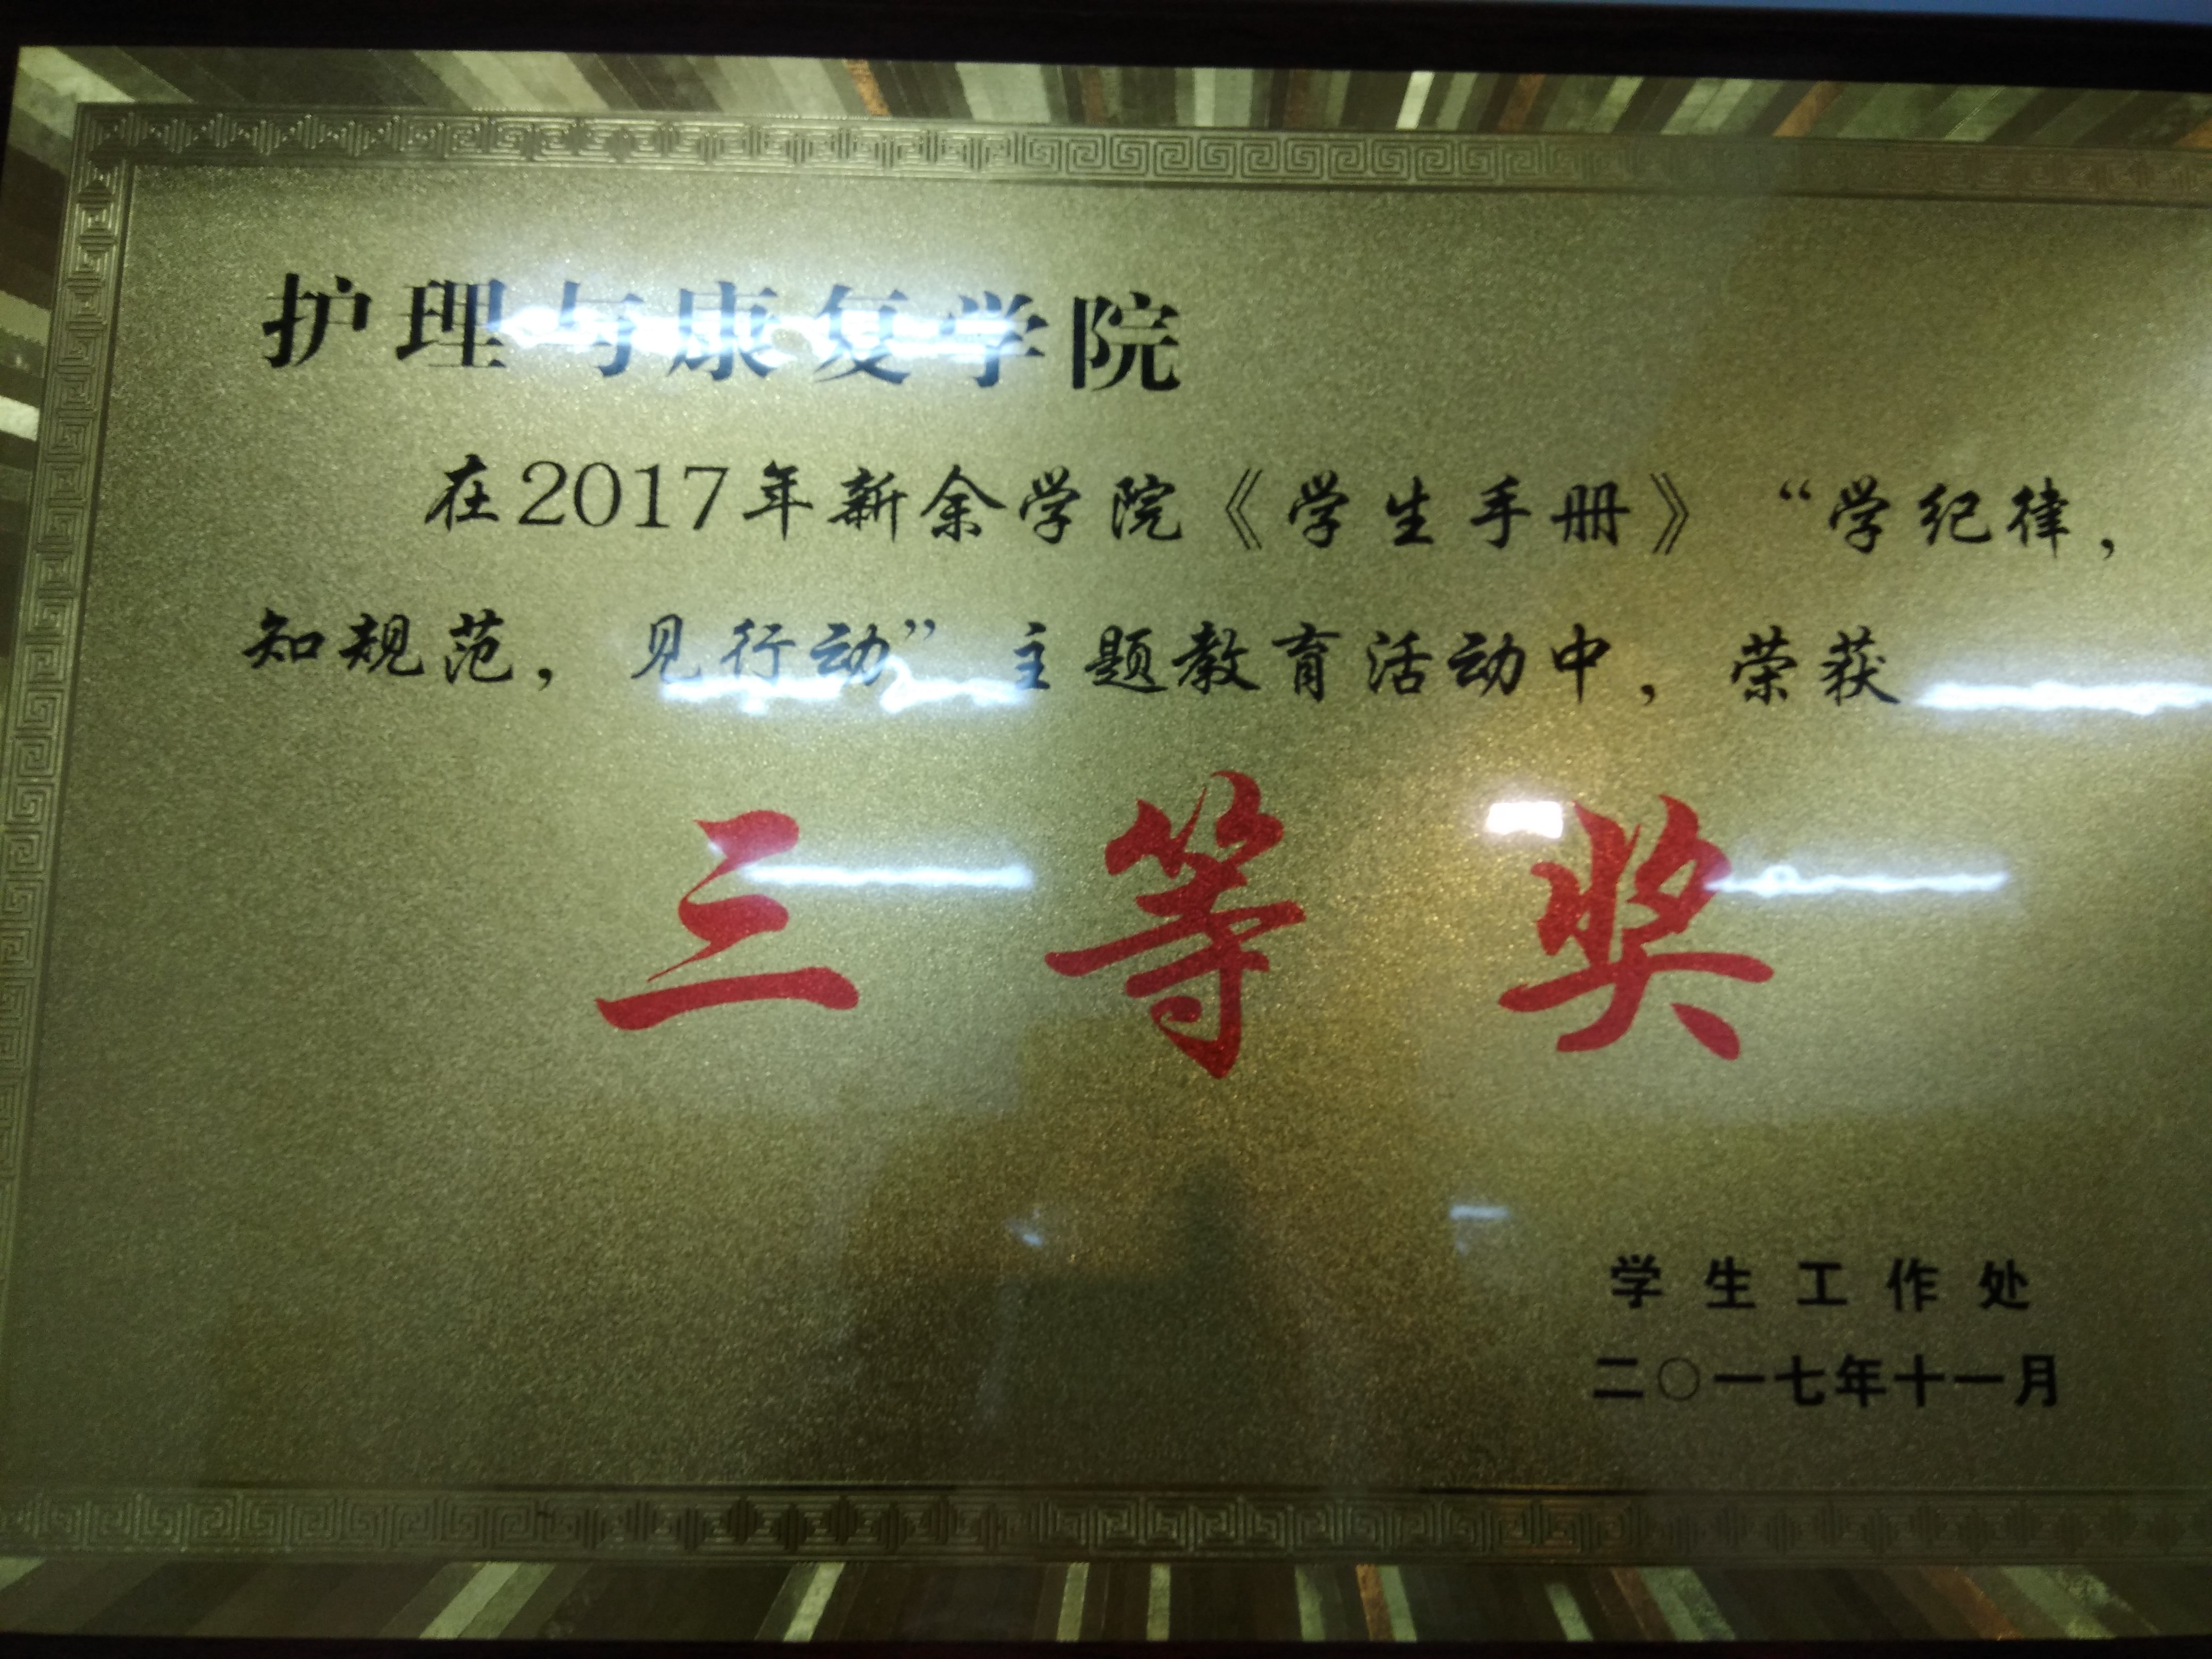 护理与康复学院
在2017年新余学院《学生手册》“学纪律，
知规范，见行动”主题教育活动中，荣获
三等奖
学生工作处
二〇一七年十一月